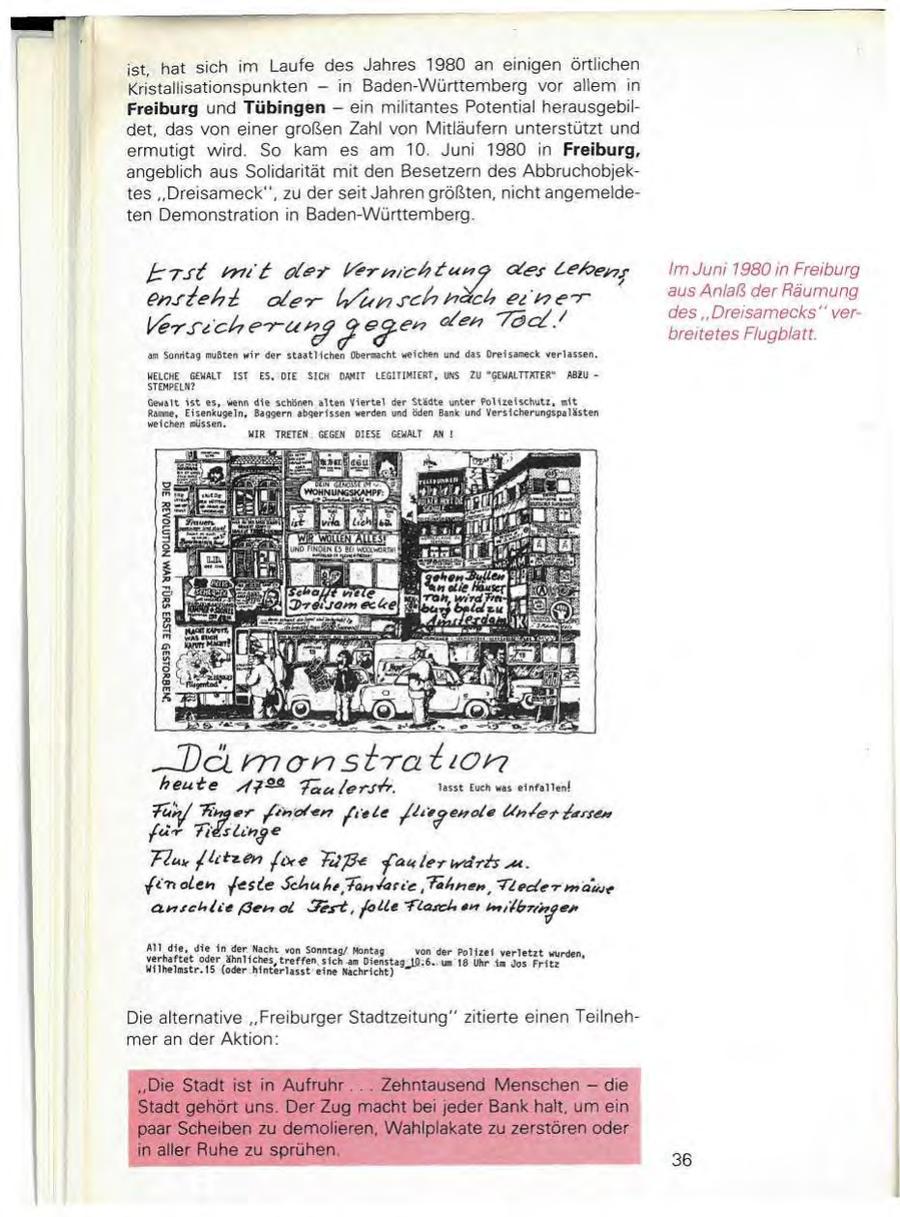 ist, hat sich im Laufe des Jahres 1980 an einigen örtlichen
Kristallisationspunkten – in Baden-Württemberg vor allem in
Freiburg und Tübingen – ein militantes Potential herausgebil-
det, das von einer großen Zahl von Mitläufern unterstützt und
ermutigt wird. So kam es am 10. Juni 1980 in Freiburg,
angeblich aus Solidarität mit den Besetzern des Abbruchobjek-
tes „Dreisameck“, zu der seit Jahren größten, nicht angemelde-
ten Demonstration in Baden-Württemberg.
Im Juni 1980 in Freiburg
aus Anlaß der Räumung
des „Dreisamecks“ ver-
breitetes Flugblatt.
Erst mit der Vernichtung des Lebens,
ensteht der Wunsch nach einer
Versicherung gegen den Tod!
am Sonntag mußten wir der staatlichen Obermacht weichen und das Dreisameck verlassen.
WELCHE GEWALT IST ES, DIE SICH DAMIT LEGITIMIERT, UNS ZU "GEWALTTÄTER" ABZU -
STEMPELN?
Gewalt ist es, wenn die schönen alten Viertel der Städte unter Polizeischutz, mit
Ramme, Eisenkugeln, Baggern abgerissen werden und öden Bank und Versicherungspalästen
weichen müssen.
WIR TRETEN GEGEN DIESE GEWALT AN !
DIE REVOLUTION WAR FÜRS ERSTE GESTORBEN!
DEIN GENOSSE IM
WOHNUNGSKAMPF:
ist vita lich ba
WIR WOLLEN ALLES!
UND FINDEN ES BEI WOOLWORTH!
Frauen
Schafft viele
Dreisamecke
gehen Bullen
an die Häuser
ran, wird Frei-
burg bald zu
Amsterdam
MACHT KAPUTT,
WAS EUCH
KAPUTT MACHT!
Dämonstration
heute 17⁰⁰ Faulerstr. lasst Euch was einfallen!
Fünf Finger finden fiele fliegende Untertassen
für Fieslinge
Flux flitzen fixe Füße faulerwärts u.
finden feste Schuhe, Fantasie, Fahnen, Fledermäuse
anschließend Fest, folle Flaschen mitbringen
All die, die in der Nacht von Sonntag/ Montag von der Polizei verletzt wurden,
verhaftet oder ähnliches, treffen sich am Dienstag 10.6. um 18 Uhr im Jos Fritz
Wilhelmstr.15 (oder hinterlasst eine Nachricht)
Die alternative „Freiburger Stadtzeitung“ zitierte einen Teilneh-
mer an der Aktion:
„Die Stadt ist in Aufruhr . . . Zehntausend Menschen – die
Stadt gehört uns. Der Zug macht bei jeder Bank halt, um ein
paar Scheiben zu demolieren, Wahlplakate zu zerstören oder
in aller Ruhe zu sprühen.
36